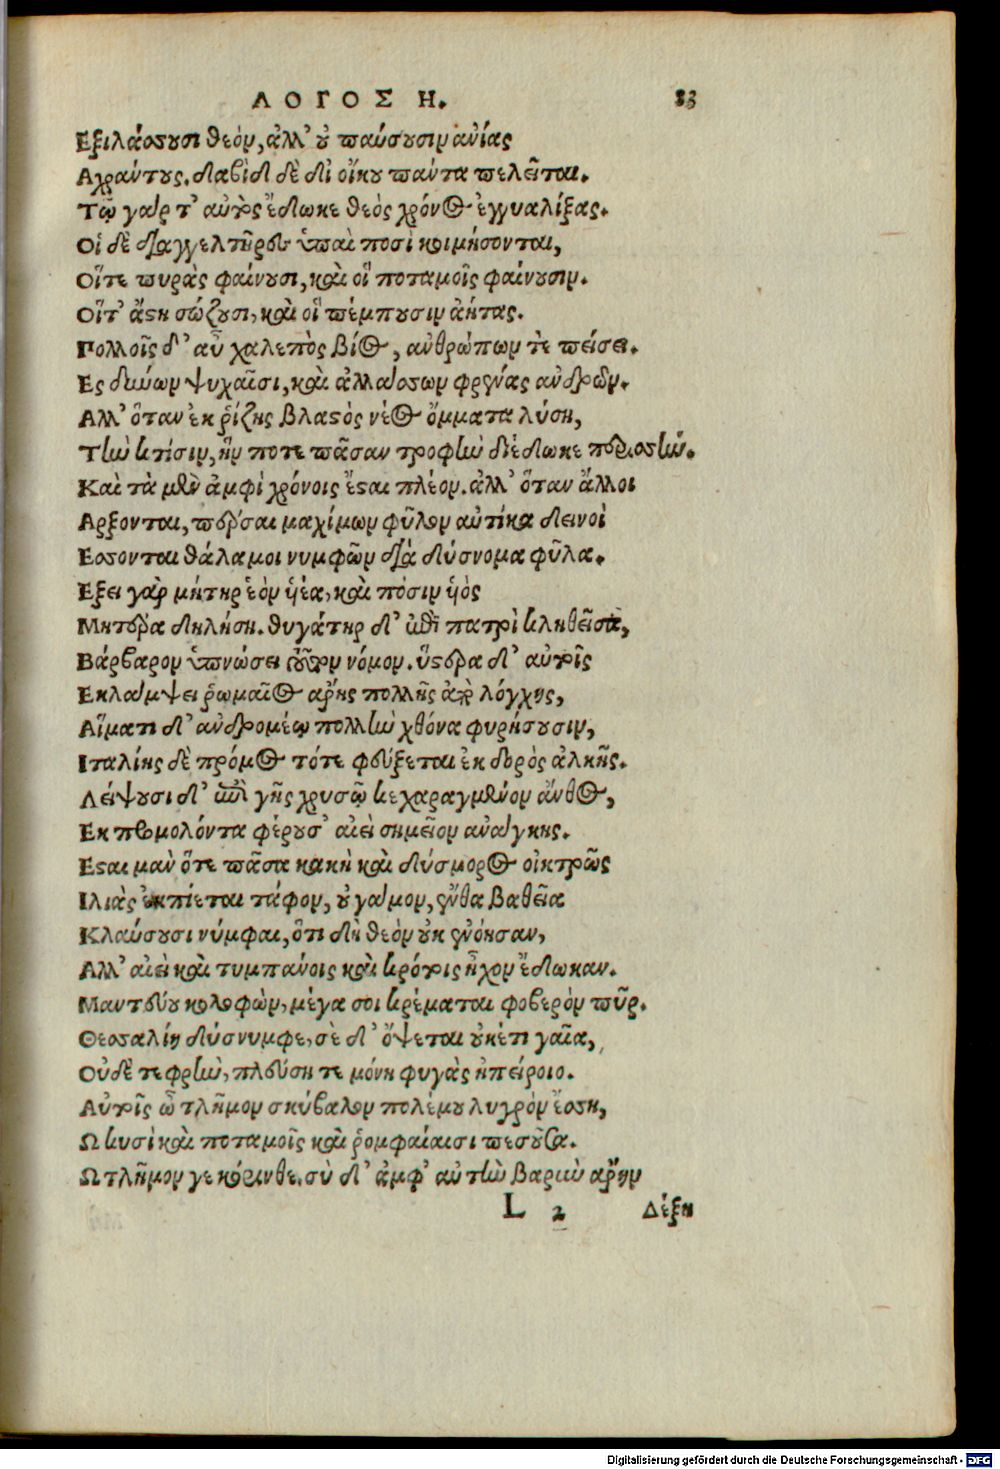 ΛΟΓΟΣ Η. 83
Εξιλάσουσι θεὸν, ἀλλ' οὐ παύσουσιν ἀνίας
Αχράντους. δαβὶδ δὲ δἰ οἴκου πάντα τελεῖται.
Τῷ γάρ τ' αὐτὸς ἔδωκε θεὸς χρόνος ἐγγυαλίξας.
Οἱ δὲ διαγγελτῆρες ὑπαὶ ποσὶ κοιμήσονται,
Οἵτε πυρὰς φαίνουσι, καὶ οἳ ποταμοῖς φαίνουσιν.
Οἵτ' ἄστη σώζουσι, καὶ οἳ πέμπουσιν ἀήτας.
Πολλοῖς δ' αὖ χαλεπὸς βίος, ἀνθρώπων τὲ πείσει.
Ες δεινῶν ψυχαῖσι, καὶ ἀλλάσσων φρένας ἀνδρῶν.
Αλλ' ὅταν ἐκ ῥίζης βλαστὸς νέος ὄμματα λύσῃ,
Τὴν κτίσιν, ἥν ποτε πᾶσαν τροφὴν διέδωκε περισσὴν.
Καὶ τὰ μὲν ἀμφὶ χρόνοις ἔσται πλέον. ἀλλ' ὅταν ἄλλοι
Αρξονται, πέρσαι μαχίμων φῦλον αὐτίκα δεινοὶ
Εσσονται θάλαμοι νυμφῶν διὰ δύσνομα φῦλα.
Εξει γὰρ μήτηρ ἑὸν ὑιέα, καὶ πόσιν ὑιὸς
Μητέρα δηλήσῃ. θυγάτηρ δ' ἐπὶ πατρὶ κληθεῖσα,
Βάρβαρον ὑπνώσει τοῦτον νόμον. ὕστερα δ' αὐτοῖς
Εκλάμψει ῥωμαῖος ἄρης πολλῆς ἀπὸ λόγχης,
Αἵματι δ' ἀνδρομέῳ πολλὴν χθόνα φυρήσουσιν,
Ιταλίης δὲ πρόμος τότε φεύξεται ἐκ δορὸς ἀλκῆς.
Λείψουσι δ' ἐπὶ γῆς χρυσῷ κεχαραγμένον ἄνθος,
Εκπρομολόντα φέρουσ' αἰεὶ σημεῖον ἀνάγκης.
Εσται μὰν ὅτε πᾶσα κακὴ καὶ δύσμορος οἰκτρῶς
Ιλιὰς ἐκπίεται τάφον, οὐ γάμον, ἔνθα βαθεῖα
Κλαύσουσι νύμφαι, ὅτι δὴ θεὸν οὐκ ἐνόησαν,
Αλλ' αἰεὶ καὶ τυμπάνοις καὶ κρότοις ἦχον ἔδωκαν.
Μαντεύου κολοφὼν, μέγα σοι κρέμαται φοβερὸν πῦρ.
Θεσσαλίη δύσνυμφε, σὲ δ' ὄψεται οὐκέτι γαῖα,
Οὐδὲ τεφρὴν, πλεύσῃ τε μόνη φυγὰς ἠπείροιο.
Αὐτοῖς ὦ τλῆμον σκύβαλον πολέμου λυγρὸν ἔσσῃ,
Ω κυσὶ καὶ ποταμοῖς καὶ ῥομφαίαισι πεσοῦσα.
Ω τλῆμον γε κόρινθε. σὺ δ' ἀμφ' αὐτὴν βαρὺν ἄρην
L 2 Δέξῃ
Digitalisierung gefördert durch die Deutsche Forschungsgemeinschaft - DFG